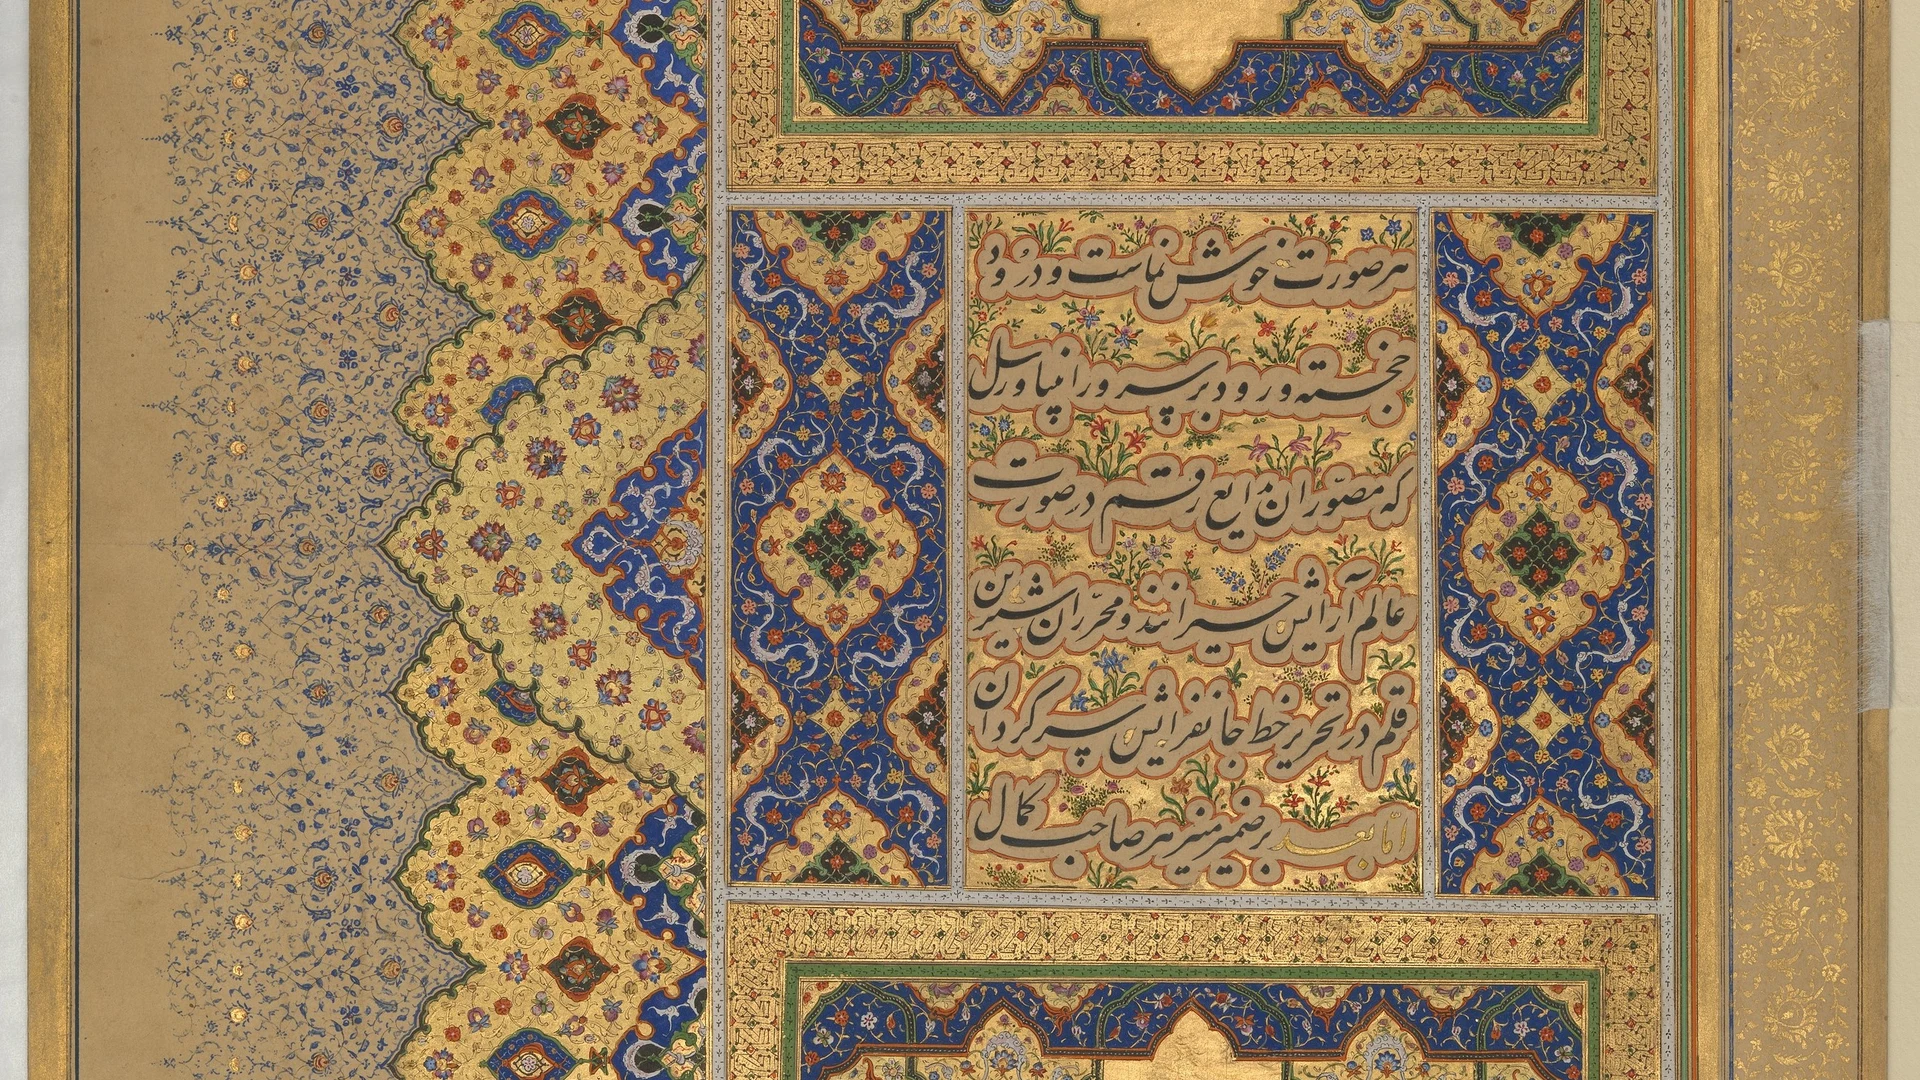 هر صورت خوش نماست و درود
خجسته ورود بر سرور انبیا و رسل
که مصوّران بدایع رقم در صورت
عالم آرایش حیرانند و محرّران شیرین
قلم در تحریر خط جانفزایش سرگردان
امّا بعد بر ضمیر منیر هر صاحب کمال